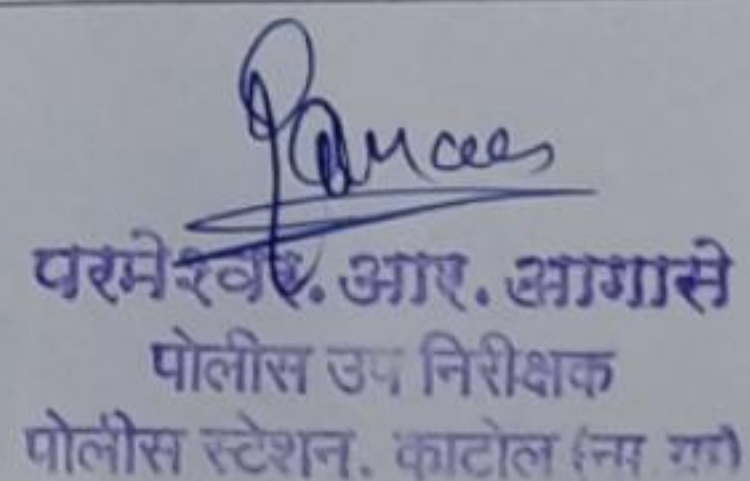 परमेश्वर. आर. आगासे
पोलीस उप निरीक्षक
पोलीस स्टेशन. काटोल